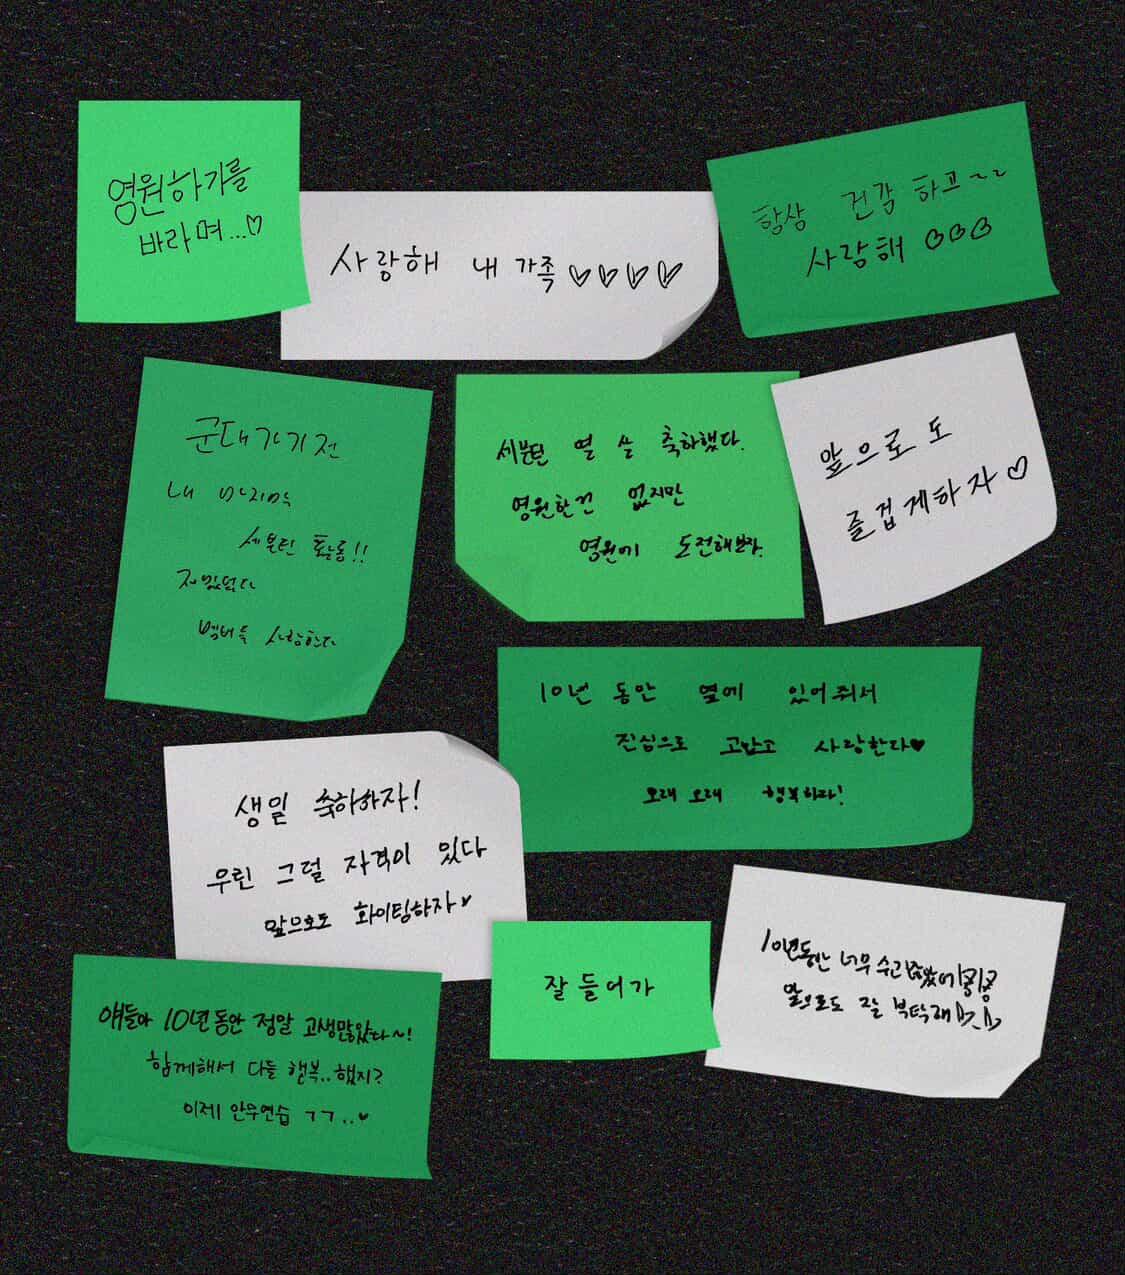 영원하기를
바라며...♡
사랑해 내 가족♡♡♡♡
항상 건강하고~~
사랑해♡♡♡
군대가기전
내 마지막
세븐틴 활동!!
재밌었다
멤버들 사랑한다
세븐틴 열 살 축하했다.
영원한건 없지만
영원에 도전해보자.
앞으로도
즐겁게하자♡
10년 동안 옆에 있어줘서
진심으로 고맙고 사랑한다♥
오래 오래 행복하자!
생일 축하하자!
우린 그럴 자격이 있다
앞으로도 화이팅하자♥
얘들아 10년동안 정말 고생많았다~!
함께해서 다들 행복..했지?
이제 안무연습 ㄱㄱ..♥
잘 들어가
10년동안 너무 수고많았어
앞으로도 잘 부탁해